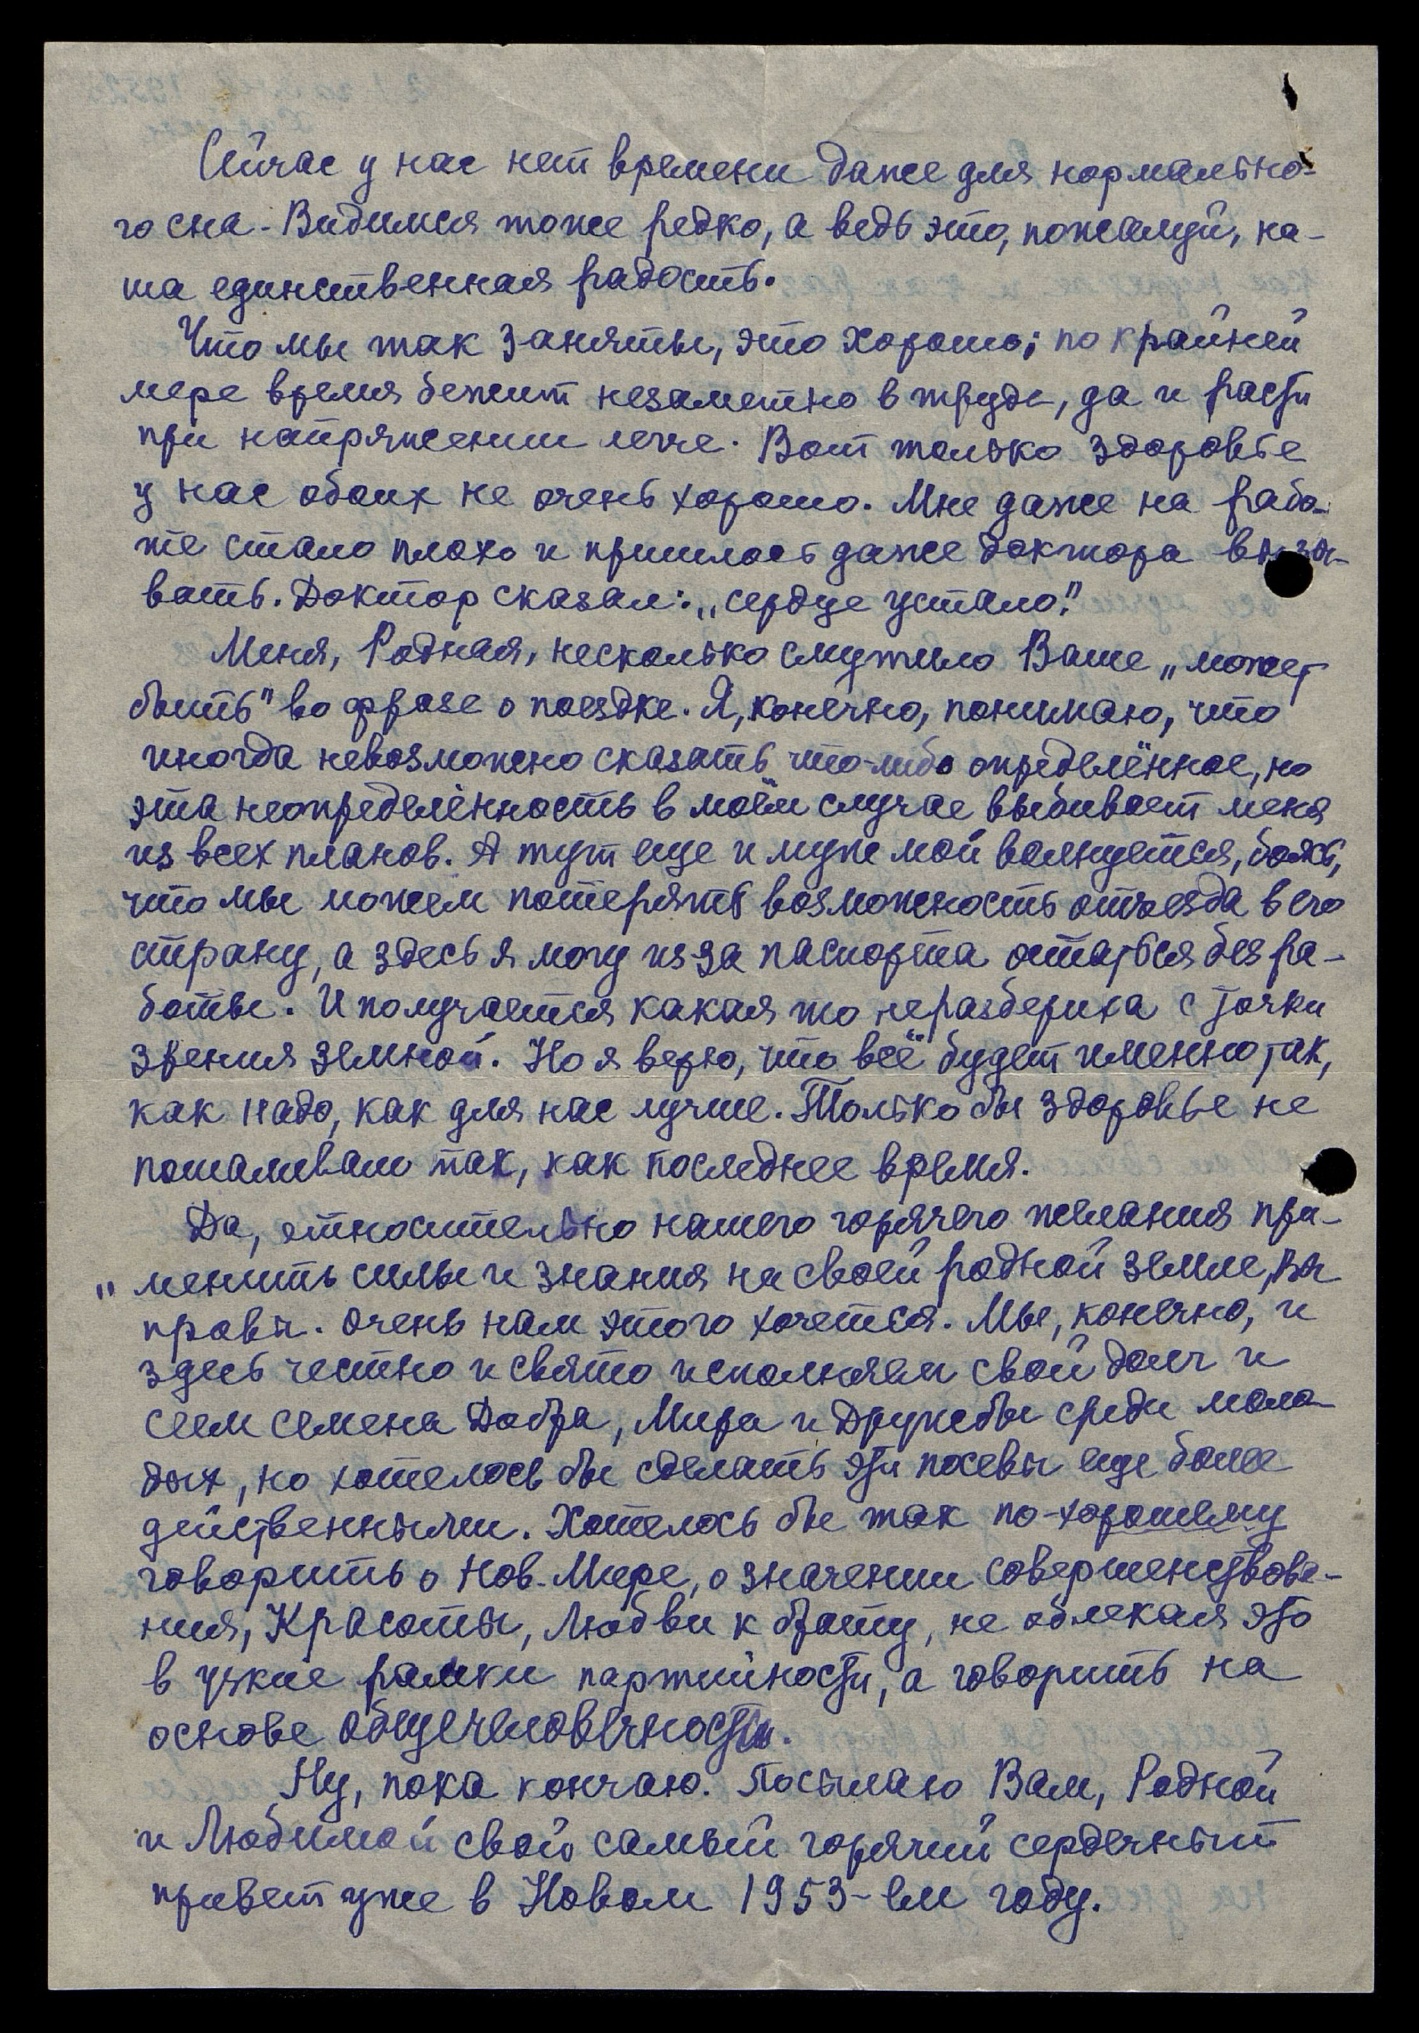 Сейчас у нас нет времени даже для нормально-
го сна. Видимся тоже редко, а ведь это, пожалуй, на-
ша единственная радость.
Что мы так заняты, это хорошо; по крайней
мере время бежит незаметно в труде, да и расти
при напряжении легче. Вот только здоровье
у нас обоих не очень хорошо. Мне даже на рабо-
те стало плохо и пришлось даже доктора вызы-
вать. Доктор сказал: „сердце устало."
Меня, Родная, несколько смутило Ваше „может
быть" во фразе о поездке. Я, конечно, понимаю, что
иногда невозможно сказать что-либо определённое, но
эта неопределённость в моём случае выбивает меня
из всех планов. А тут еще и муж мой волнуется, боясь,
что мы можем потерять возможность отъезда в его
страну, а здесь я могу из-за паспорта остаться без ра-
боты. И получается какая то неразбериха с точки
зрения земной. Но я верю, что всё будет именно так,
как надо, как для нас лучше. Только бы здоровье не
пошаливало так, как последнее время.
Да, относительно нашего горячего желания при-
„менить силы и знания на своей родной земле, Вы
правы. Очень нам этого хочется. Мы, конечно, и
здесь честно и свято исполняем свой долг и
сеем семена Добра, Мира и Дружбы среди моло-
дых, но хотелось бы сделать эти посевы еще более
действенными. Хотелось бы так по-хорошему
говорить о Нов. Мире, о значении совершенствова-
ния, Красоты, Любви к брату, не облекая это
в узкие рамки партийности, а говорить на
основе общечеловечности.
Ну, пока кончаю. Посылаю Вам, Родной
и Любимой свой самый горячий сердечный
привет уже в Новом 1953-ем году.